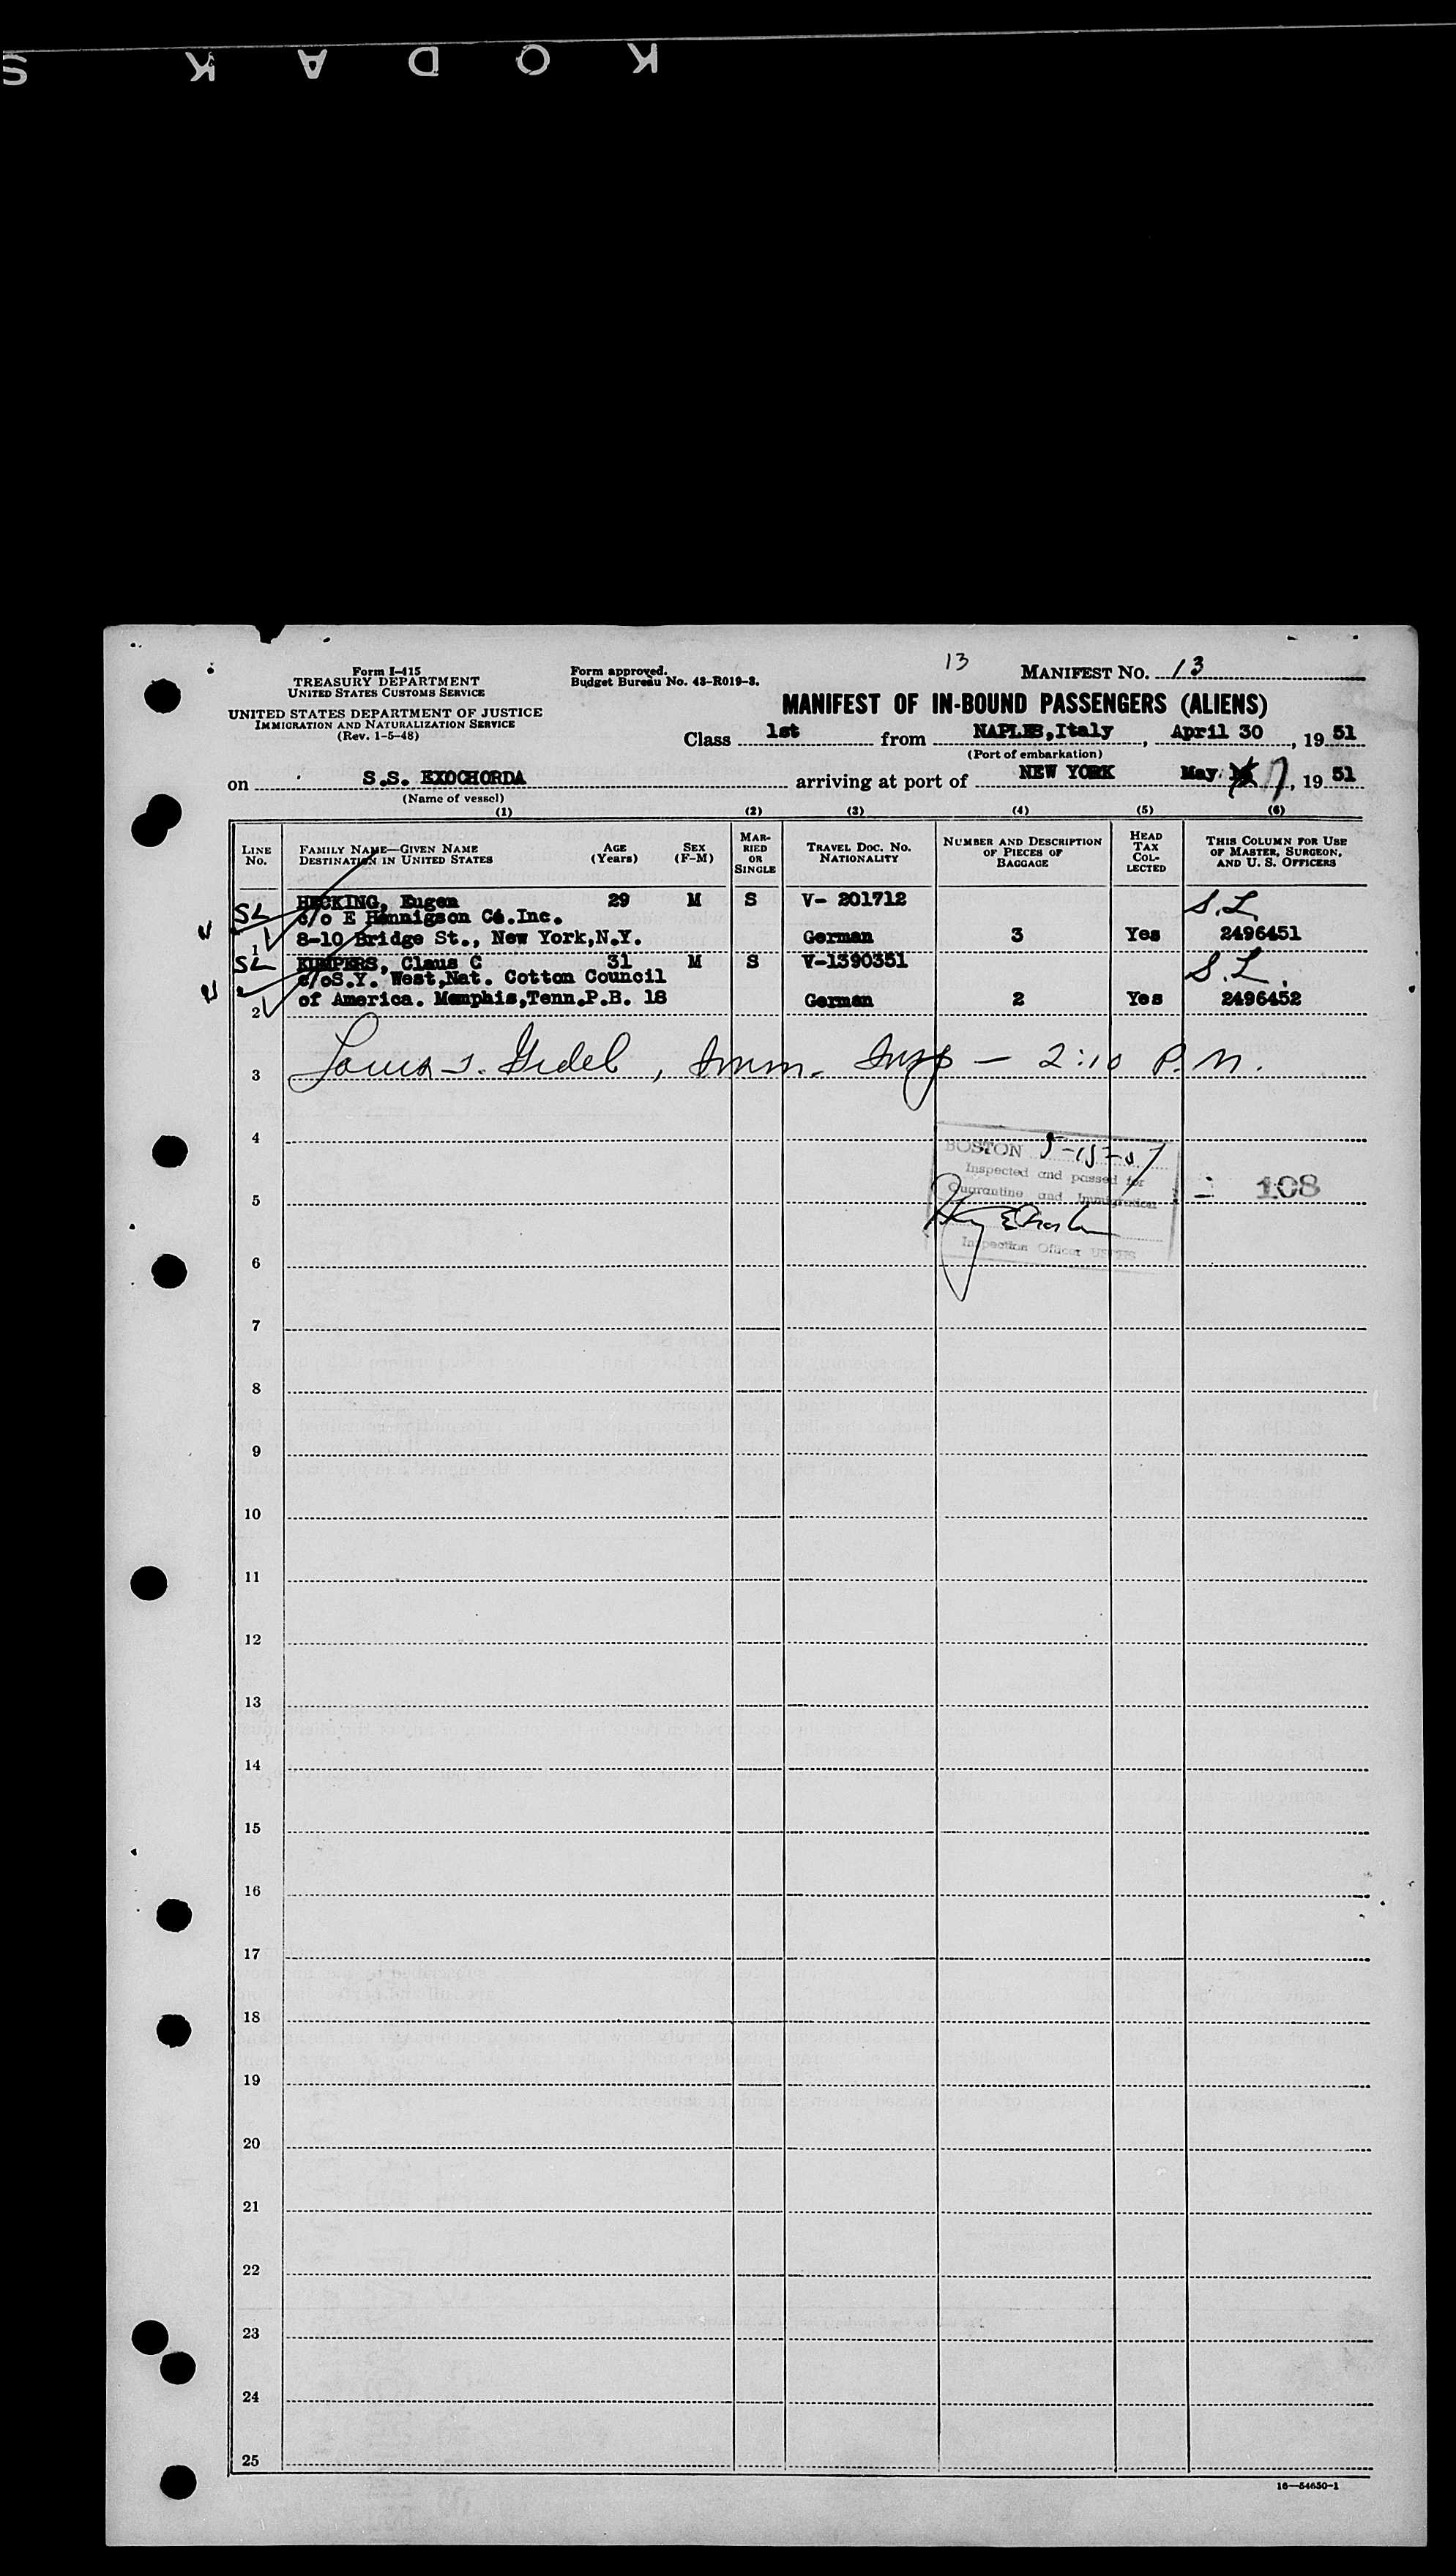 K O D A K S
Form I-415
TREASURY DEPARTMENT
UNITED STATES CUSTOMS SERVICE
UNITED STATES DEPARTMENT OF JUSTICE
IMMIGRATION AND NATURALIZATION SERVICE
(Rev. 1-5-48)
Form approved.
Budget Bureau No. 43-R019-3.
13
MANIFEST NO. 13
MANIFEST OF IN-BOUND PASSENGERS (ALIENS)
Class 1st from NAPLES,Italy, April 30, 19 51
(Port of embarkation)
on S.S. EXOCHORDA arriving at port of NEW YORK May 17, 19 51
(Name of vessel)
(1) (2) (3) (4) (5) (6)
LINE NO.
FAMILY NAME—GIVEN NAME
DESTINATION IN UNITED STATES
AGE (Years)
SEX (F-M)
MARRIED OR SINGLE
TRAVEL DOC. NO. NATIONALITY
NUMBER AND DESCRIPTION OF PIECES OF BAGGAGE
HEAD TAX COLLECTED
THIS COLUMN FOR USE OF MASTER, SURGEON, AND U. S. OFFICERS
SL HECKING, Eugen 29 M S V- 201712 S.L.
c/o E Hennigson Co.Inc.
1 8-10 Bridge St., New York,N.Y. German 3 Yes 2496451
SL KUMPERS, Claus C 31 M S V-1390351 S.L.
c/oS.Y. West,Nat. Cotton Council
2 of America. Memphis,Tenn.P.B. 18 German 2 Yes 2496452
3 Louis J. Gidel, Imm. Insp — 2:10 P.M.
4
BOSTON
Inspected and passed for
5 Quarantine and Immigration 108
Inspection Officer USPHS
6
7
8
9
10
11
12
13
14
15
16
17
18
19
20
21
22
23
24
25
16—54650-1